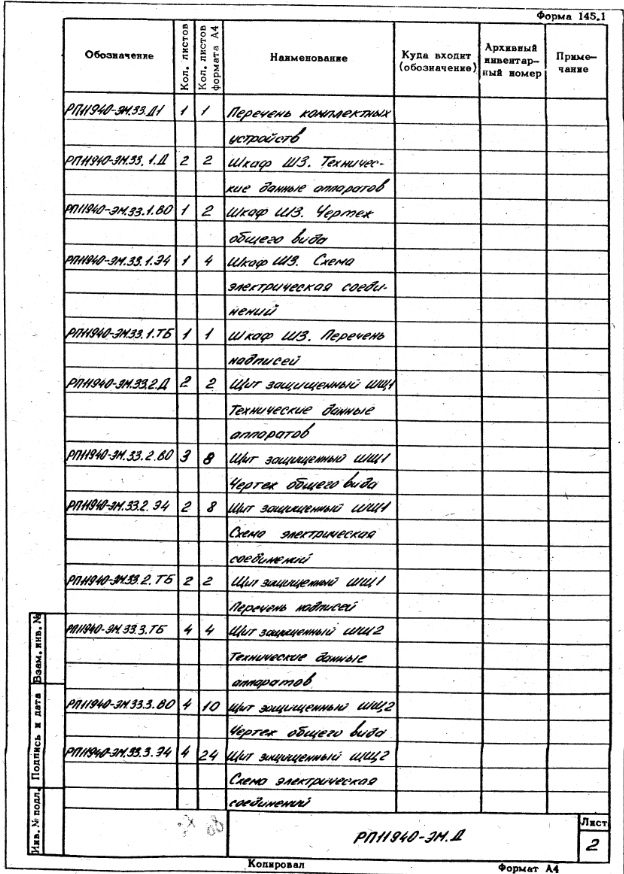 Форма 145.1
Обозначение Кол. листов Кол. листов формата А4 Наименование Куда входит (обозначение) Архивный инвентар-ный номер Приме-чание
РП11940-ЭМ.33.Д1 1 1 Перечень комплектных
устройств
РП11940-ЭМ.33.1.Д 2 2 Шкаф ШЗ. Техничес-
кие данные аппаратов
РП11940-ЭМ.33.1.ВО 1 2 Шкаф ШЗ. Чертеж
общего вида
РП11940-ЭМ.33.1.Э4 1 4 Шкаф ШЗ. Схема
электрическая соеди-
нений
РП11940-ЭМ.33.1.ТБ 1 1 Шкаф ШЗ. Перечень
надписей
РП11940-ЭМ.33.2.Д 2 2 Щит защищенный ШЩ1
Технические данные
аппаратов
РП11940-ЭМ.33.2.ВО 3 8 Щит защищенный ШЩ1
Чертеж общего вида
РП11940-ЭМ.33.2.Э4 2 8 Щит защищенный ШЩ1
Схема электрическая
соединений
РП11940-ЭМ.33.2.ТБ 2 2 Щит защищенный ШЩ1
Перечень надписей
РП11940-ЭМ.33.3.ТБ 4 4 Щит защищенный ШЩ2
Технические данные
аппаратов
РП11940-ЭМ.33.3.ВО 4 10 Щит защищенный ШЩ2
Чертеж общего вида
РП11940-ЭМ.33.3.Э4 4 24 Щит защищенный ШЩ2
Схема электрическая
соединений
Инв. № подл. Подпись и дата Взам. инв. №
РП11940-ЭМ.Д
Лист
2
Копировал Формат А4